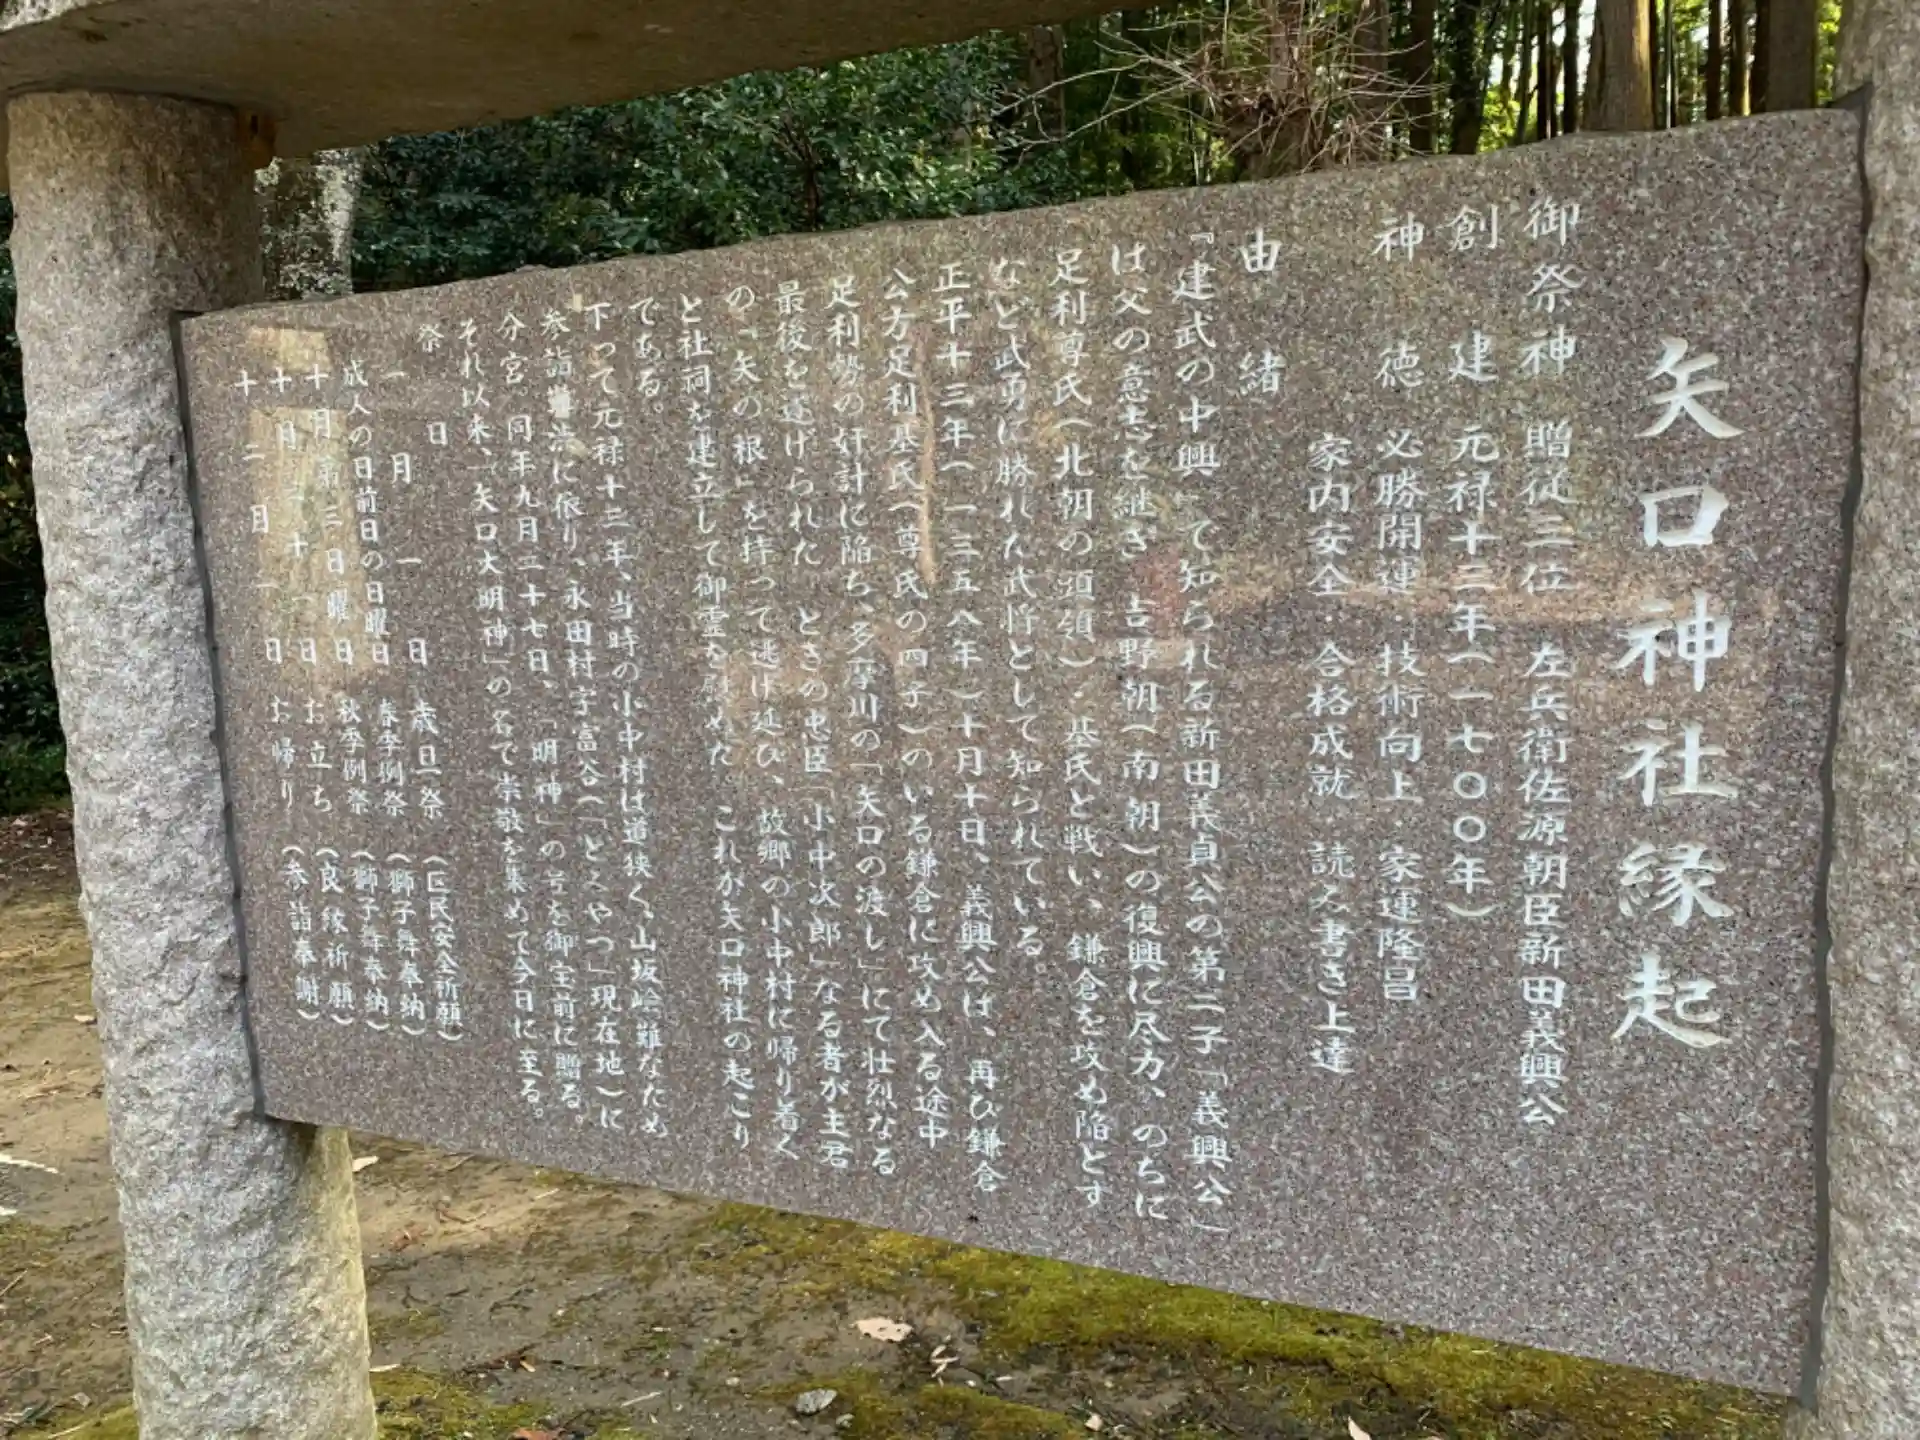 矢口神社縁起
御祭神 贈従三位 左兵衛佐源朝臣新田義興公
創建 元禄十三年(一七〇〇年)
神徳 必勝開運・技術向上・家運隆昌
家内安全・合格成就・読み書き上達
由緒
『建武の中興』で知られる新田義貞公の第二子「義興公」
は父の意志を継ぎ、吉野朝(南朝)の復興に尽力、のちに
足利尊氏(北朝の頭領)・基氏と戦い、鎌倉を攻め陥とす
など武勇に勝れた武将として知られている。
正平十三年(一三五八年)十月十日、義興公は、再び鎌倉
公方足利基氏(尊氏の四子)のいる鎌倉に攻め入る途中
足利勢の奸計に陥ち、多摩川の「矢口の渡し」にて壮烈なる
最後を遂げられた。ときの忠臣「小中次郎」なる者が主君
の「矢の根」を持って逃げ延び、故郷の小中村に帰り着く
と社祠を建立して御霊を慰めた。これが矢口神社の起こり
である。
下って元禄十三年、当時の小中村は道狭く、山坂嶮難なため
参詣に依り、永田村字富谷(「とみやつ」現在地)に
分宮。同年九月二十七日、「明神」の号を御宝前に贈る。
それ以来、「矢口大明神」の名で崇敬を集めて今日に至る。
祭日
一月一日 歳旦祭 (区民安全祈願)
成人の日前日の日曜日 春季例祭 (獅子舞奉納)
十月第三日曜日 秋季例祭 (獅子舞奉納)
十月三十一日 お立ち (良縁祈願)
十二月一日 お帰り (参詣奉謝)